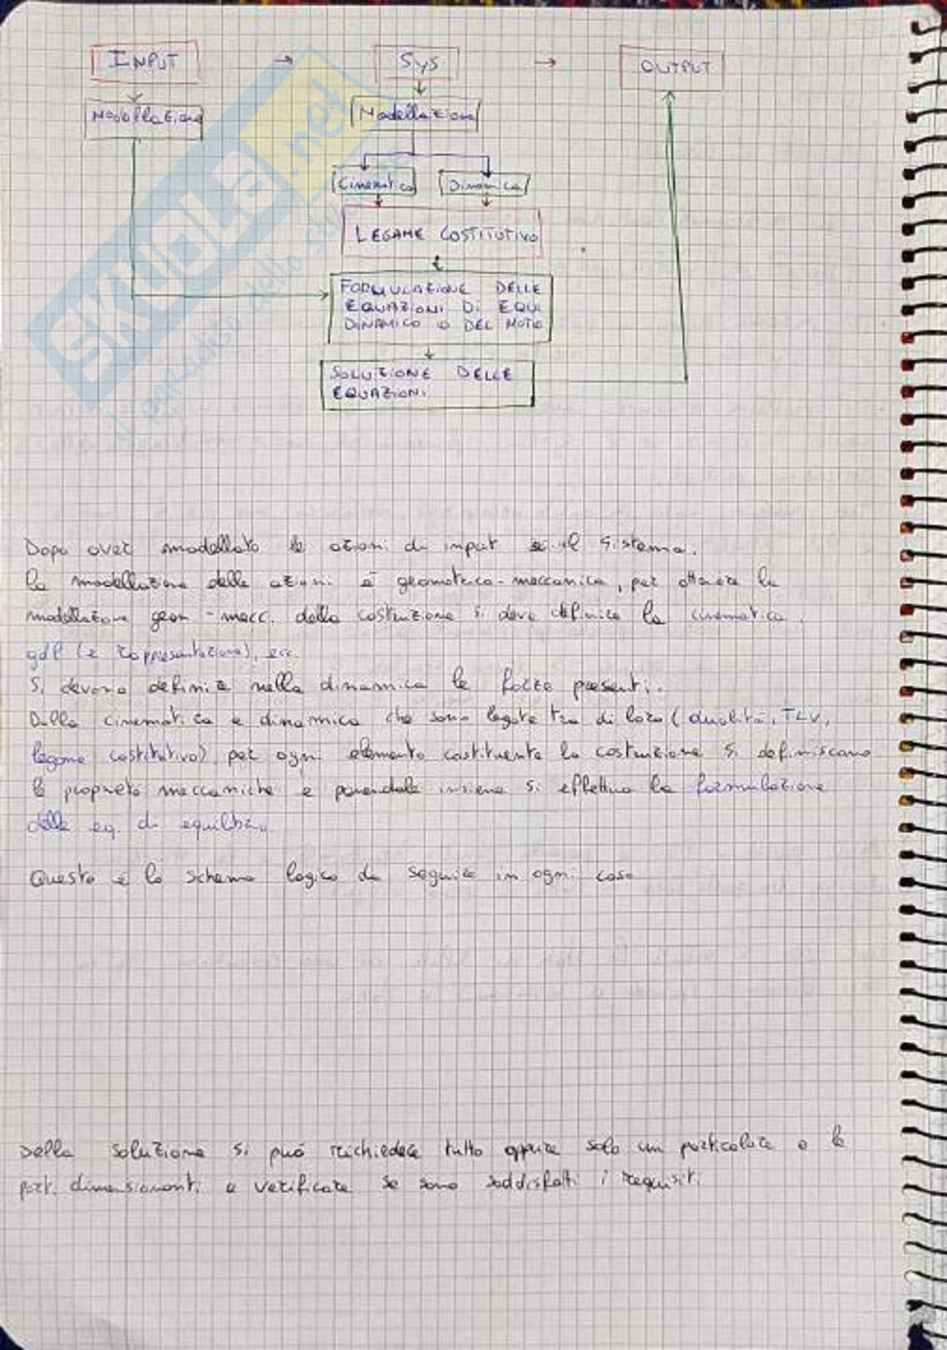 INPUT → SYS → OUTPUT
Modellazione
Modellazione
Cinematica Dinamica
LEGAME COSTITUTIVO
FORMULAZIONE DELLE
EQUAZIONI DI EQUI
DINAMICO O DEL MOTO
SOLUZIONE DELLE
EQUAZIONI
SKUOLA.net
Dopo aver modellato le azioni di input il sistema.
La modellazione delle azioni è geometrico-meccanica, per ottenere la
modellazione geom-mecc. della costruzione si deve definire la cinematica,
gdl (e rappresentazione), ecc.
Si devono definire nella dinamica le forze presenti.
Dalla cinematica e dinamica che sono legate tra di loro (dualità, TLV,
legame costitutivo) per ogni elemento costituente la costruzione si definiscono
le proprietà meccaniche e ponendole insieme si effettua la formulazione
delle eq. di equilibrio
Questo è lo schema logico da seguire in ogni caso
Della soluzione si può richiedere tutto oppure solo un particolare o le
part. dimensionanti e verificare se sono soddisfatti i requisiti.